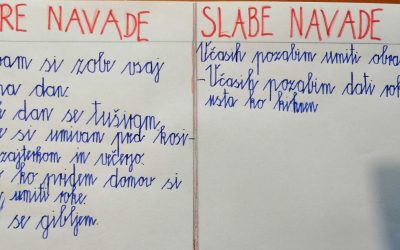 RE NAVADE
vam si zobe vsaj
na dan.
dan se tuširam
e si umivam pred kosi-
zajterkom in večerjo.
ko pridem domov si
umiti roke.
se gibljem.
SLABE NAVADE
Včasih pozabim umiti obra
-Včasih pozabim dati roke
usta ko kihnem